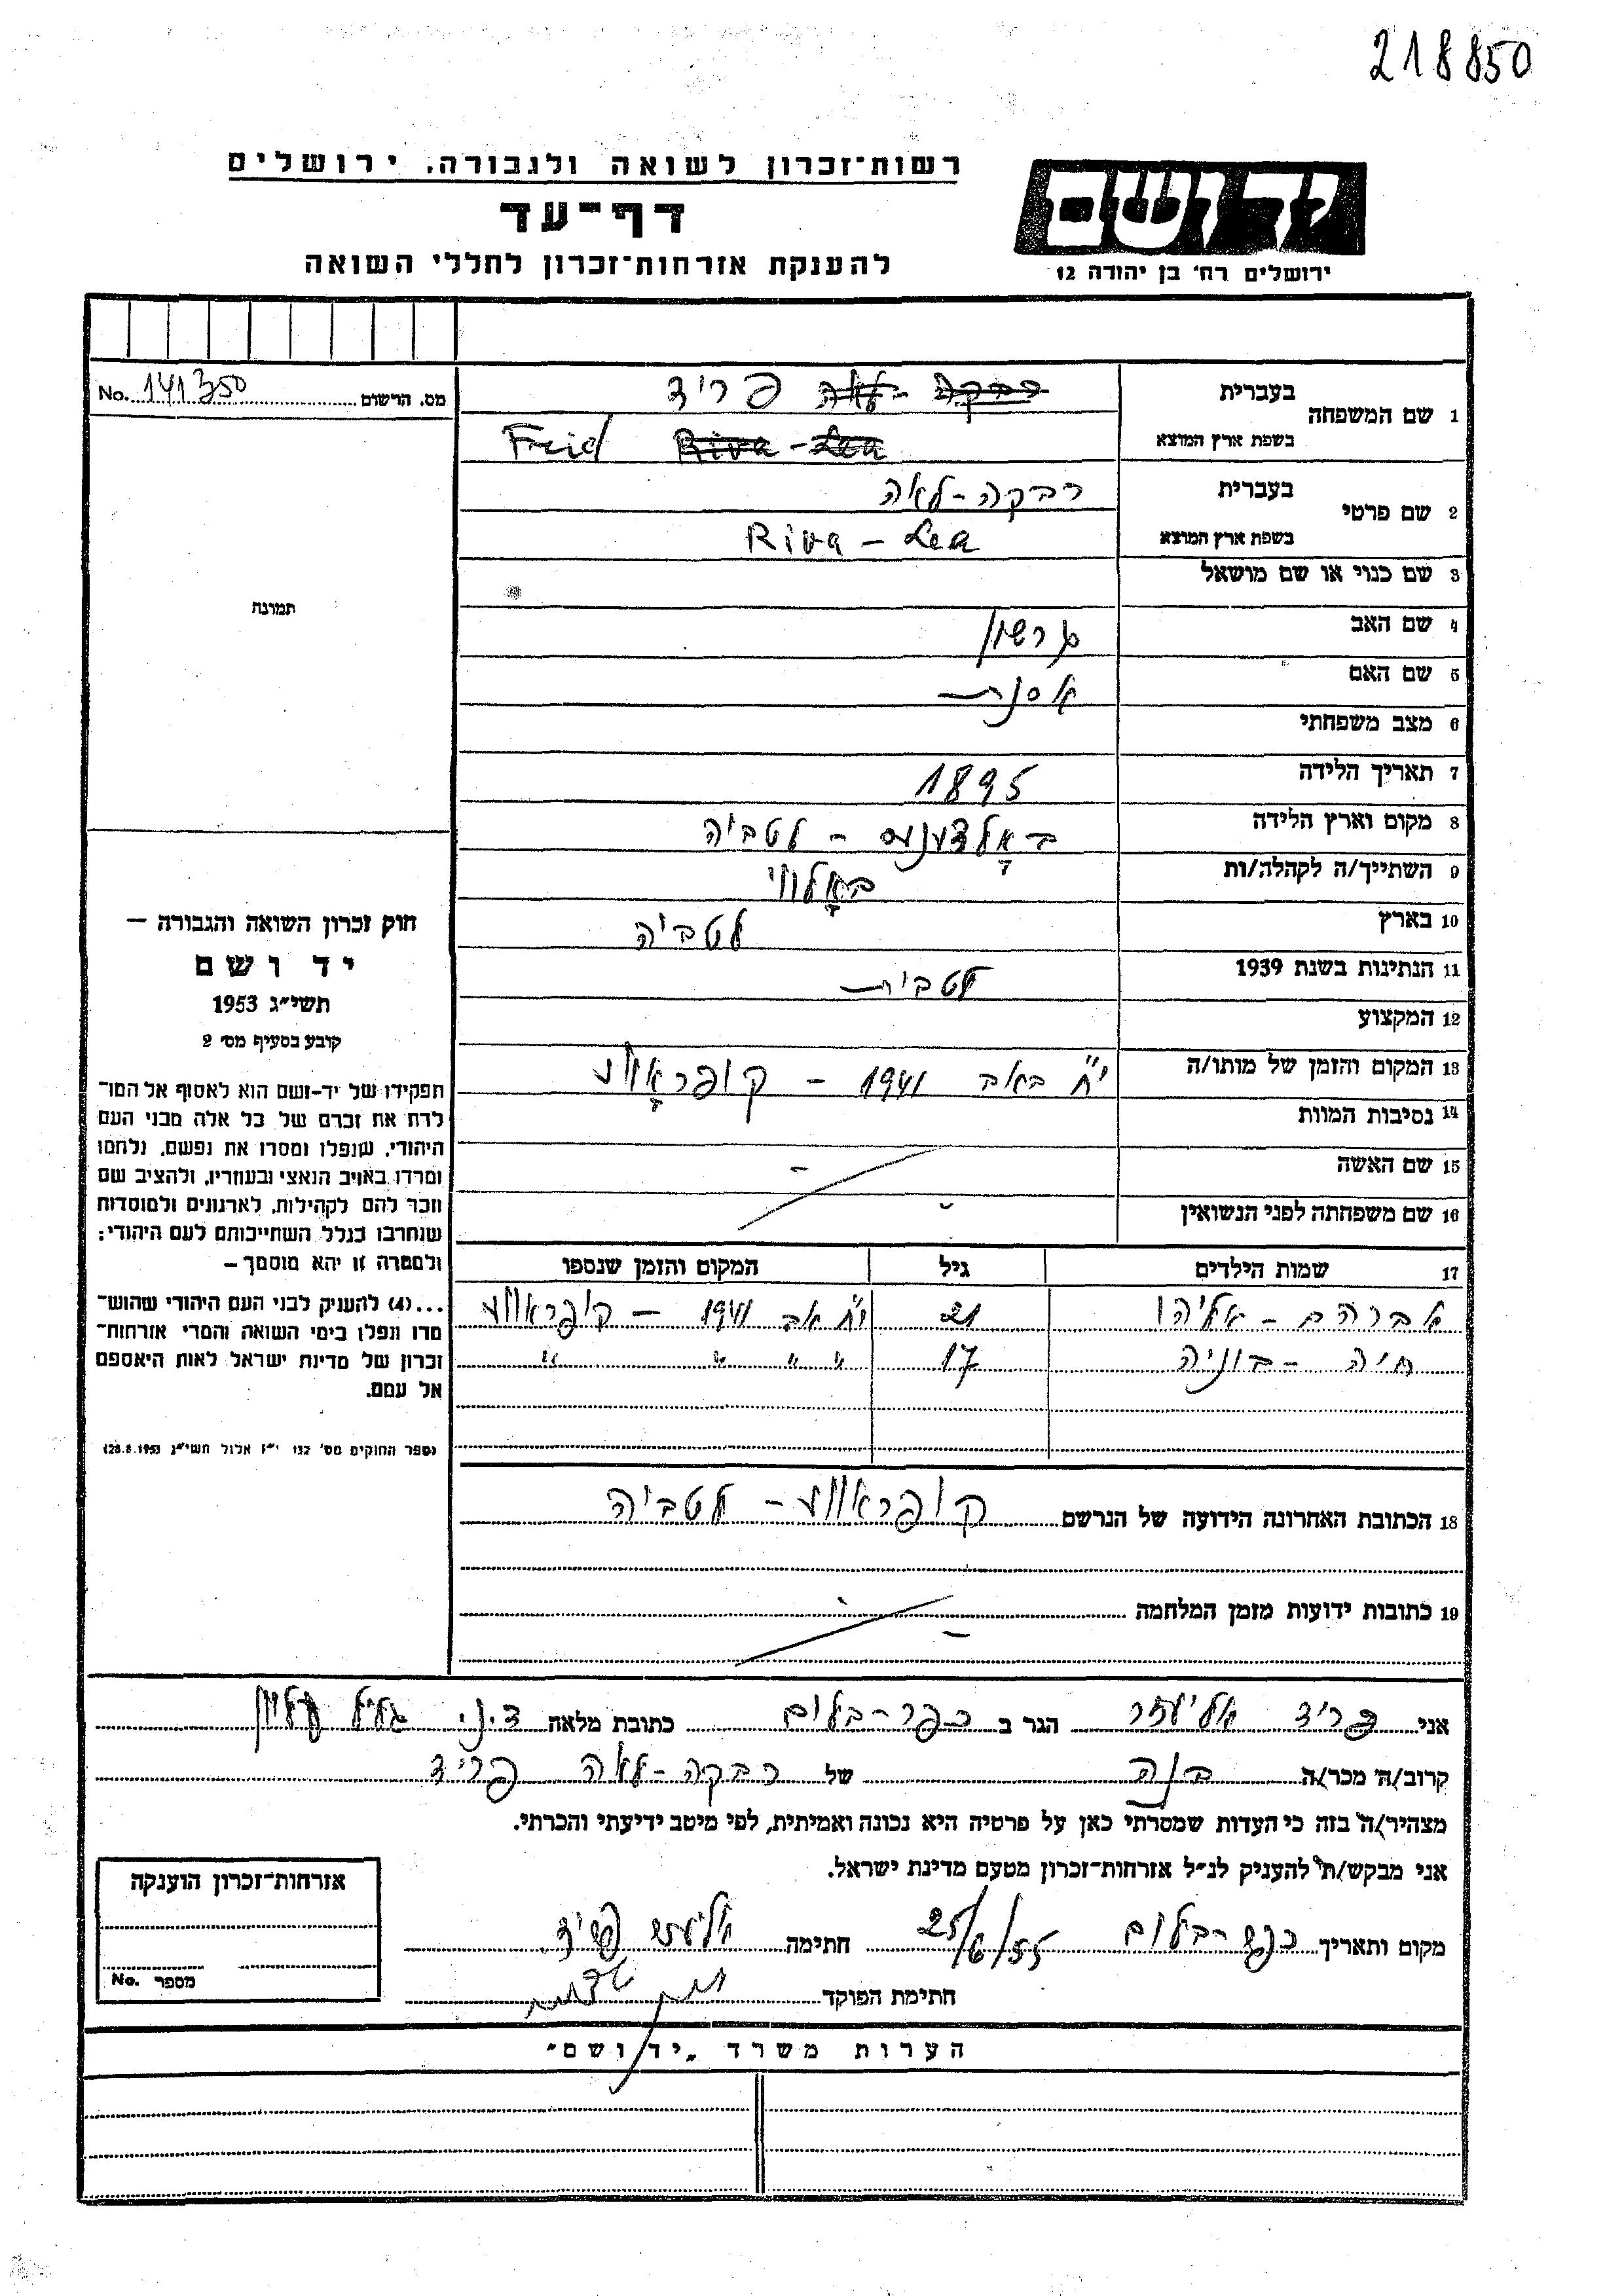 218850
רשות־זכרון לשואה ולגבורה, ירושלים
יד ושם
דף־עד
להענקת אזרחות־זכרון לחללי השואה
ירושלים רח' בן יהודה 12
מס. הרשום 141350 No.
1 שם המשפחה
בעברית רבקה-לאה פריד
בשפת ארץ המוצא Freid Riva-Lea
2 שם פרטי
בעברית רבקה-לאה
בשפת ארץ המוצא Riva-Lea
3 שם כנוי או שם מושאל
4 שם האב גרשון
5 שם האם אסנת
6 מצב משפחתי
7 תאריך הלידה 1895
8 מקום וארץ הלידה - לטביה
9 השתייך/ה לקהלה/ות באָלווי
10 בארץ לטביה
11 הנתינות בשנת 1939 לטבית
12 המקצוע
13 המקום והזמן של מותו/ה י"ח באב 1941 - קופראָווע
14 נסיבות המוות
15 שם האשה -
16 שם משפחתה לפני הנשואין -
17 שמות הילדים גיל המקום והזמן שנספו
אברהם-אליהו 21 י"ח אב 1941 - קופראווע
חיה-בוניה 17 " " " "
18 הכתובת האחרונה הידועה של הנרשם קופראווע - לטביה
19 כתובות ידועות מזמן המלחמה -
תמונה
חוק זכרון השואה והגבורה —
יד ושם
תשי"ג 1953
קובע בסעיף מס' 2
תפקידו של יד-ושם הוא לאסוף אל המו־
לדת את זכרם של כל אלה מבני העם
היהודי, שנפלו ומסרו את נפשם, נלחמו
ומרדו באויב הנאצי ובעוזריו, ולהציב שם
וזכר להם לקהילות, לארגונים ולמוסדות
שנחרבו בגלל השתייכותם לעם היהודי;
ולמטרה זו יהא מוסמך —
...(4) להעניק לבני העם היהודי שהוש־
מדו ונפלו בימי השואה והמרי אזרחות־
זכרון של מדינת ישראל לאות היאספם
אל עמם.
(ספר החוקים מס' 132 י"ז אלול תשי"ג 28.8.1953)
אני פריד אליעזר הגר ב כפר-בלום כתובת מלאה ד.נ. גליל עליון
קרוב/ה מכר/ה בנה של רבקה-לאה פריד
מצהיר/ה בזה כי העדות שמסרתי כאן על פרטיה היא נכונה ואמיתית, לפי מיטב ידיעתי והכרתי.
אני מבקש/ת להעניק לנ"ל אזרחות־זכרון מטעם מדינת ישראל.
מקום ותאריך כפר-בלום 25/6/55 חתימה אליעזר פריד
חתימת הפוקד
אזרחות־זכרון הוענקה
מספר No.
הערות משרד "יד ושם"